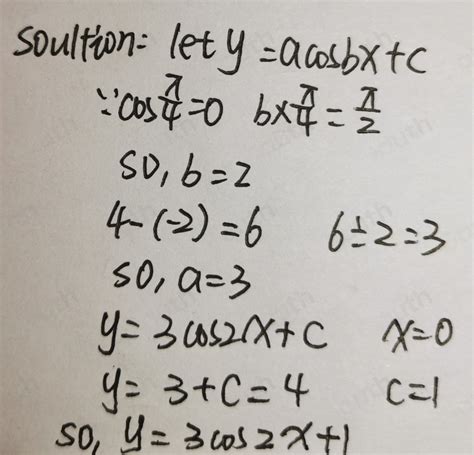 Soultion: let y = acosbx+c
∵cos π/4 = 0  b×π/4 = π/2
so, b=2
4-(-2)=6  6÷2=3
so, a=3
y=3cos2x+c  x=0
y= 3+c=4  c=1
so, y=3cos2x+1